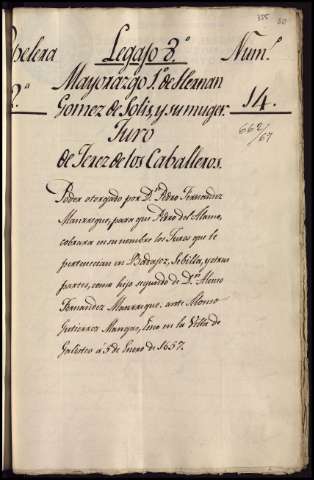 355 50
pelera Legajo 3.º Num.º
Mayorazgo 1.º de Hernan
2.º Gomez de Solis, y su muger. 14.
Juro
de Jerez de los Caballeros.
662/67
Poder otorgado por D.n Pedro Fernandez
Manrrique, para que Pedro del Alamo,
cobrara en su nombre los Juros que le
pertenecian en Badajoz, Sebilla, y otras
partes, como hijo segundo de D.n Alonso
Fernandez Manrrique. ante Alonso
Gutierrez Manzas, Esno en la Villa de
Galisteo á 5 de Enero de 1657.